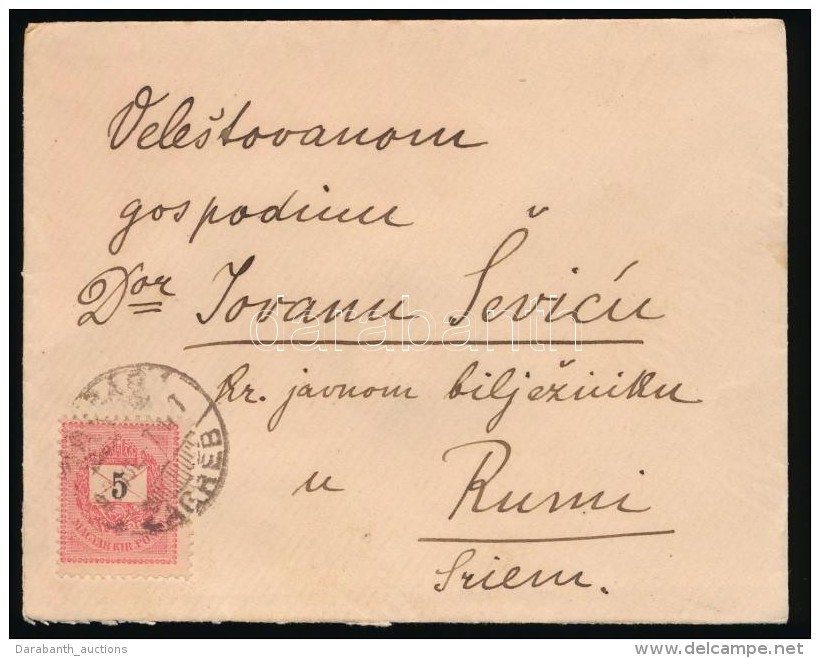 Veleštovanom
gospodinu
Dor Jovanu Ševiću
kr. javnom bilježniku
u Rumi
Sriem.
ZAGREB
5
MAGYAR KIR. POSTA
darabanth
Darabanth_auctions
www.delcampe.net